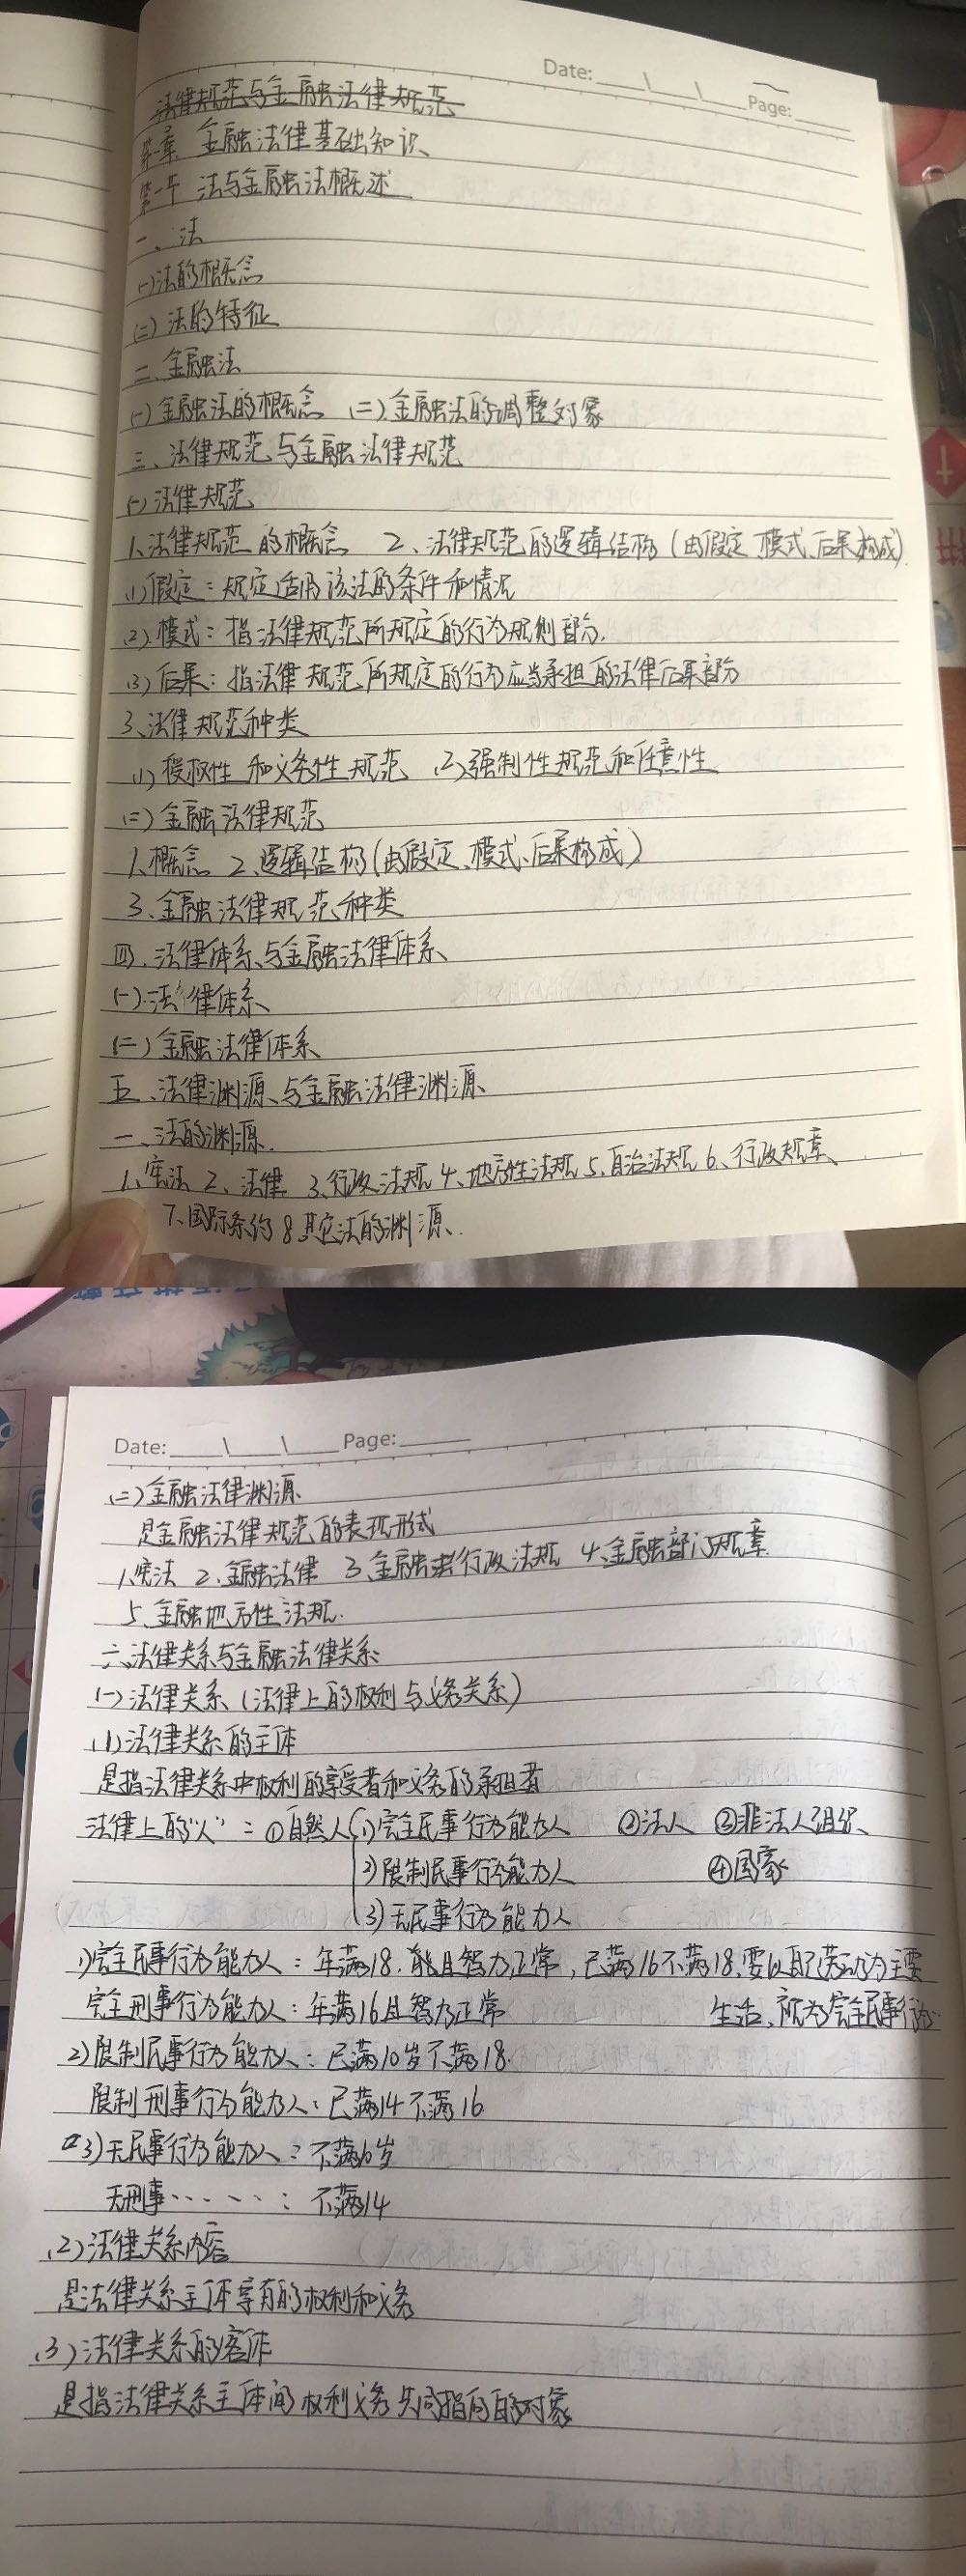 Date: Page:
法律规范与金融法律规范
第一章 金融法律基础知识
第一节 法与金融法概述
一、法
(一)法的概念
(二)法的特征
二、金融法
(一)金融法的概念 (二)金融法的调整对象
三、法律规范与金融法律规范
(一)法律规范
1、法律规范的概念 2、法律规范的逻辑结构(由假定、模式、后果构成)
(1)假定：规定适用该法的条件和情况
(2)模式：指法律规范所规定的行为规则部分.
(3)后果：指法律规范所规定的行为应当承担的法律后果部分
3、法律规范种类
(1)授权性和义务性规范 (2)强制性规范和任意性
(二)金融法律规范
1、概念 2、逻辑结构(由假定、模式、后果构成)
3、金融法律规范种类
四、法律体系与金融法律体系
(一)法律体系
(二)金融法律体系
五、法律渊源与金融法律渊源
一、法的渊源
1、宪法 2、法律 3、行政法规 4、地方性法规 5、自治法规 6、行政规章
7、国际条约 8其它法的渊源.
Date: Page:
(二)金融法律渊源
是金融法律规范的表现形式
1、宪法 2、金融法律 3、金融行政法规 4、金融部门规章
5、金融地方性法规.
六、法律关系与金融法律关系
(一)法律关系(法律上的权利与义务关系)
(1)法律关系的主体
是指法律关系中权利的享受者和义务的承担者
法律上的“人”：①自然人 1)完全民事行为能力人 ②法人 ③非法人组织
2)限制民事行为能力人 ④国家
3)无民事行为能力人
1)完全民事行为能力人：年满18.能且智力正常,已满16不满18,要以自己劳动为主要
完全刑事行为能力人：年满16且智力正常 生活、视为完全民事行为
2)限制民事行为能力人：已满10岁不满18.
限制刑事行为能力人：已满14不满16
3)无民事行为能力人：不满10岁
无刑事……：不满14
(2)法律关系内容
是法律关系主体享有的权利和义务
(3)法律关系的客体
是指法律关系主体间权利义务共同指向的对象